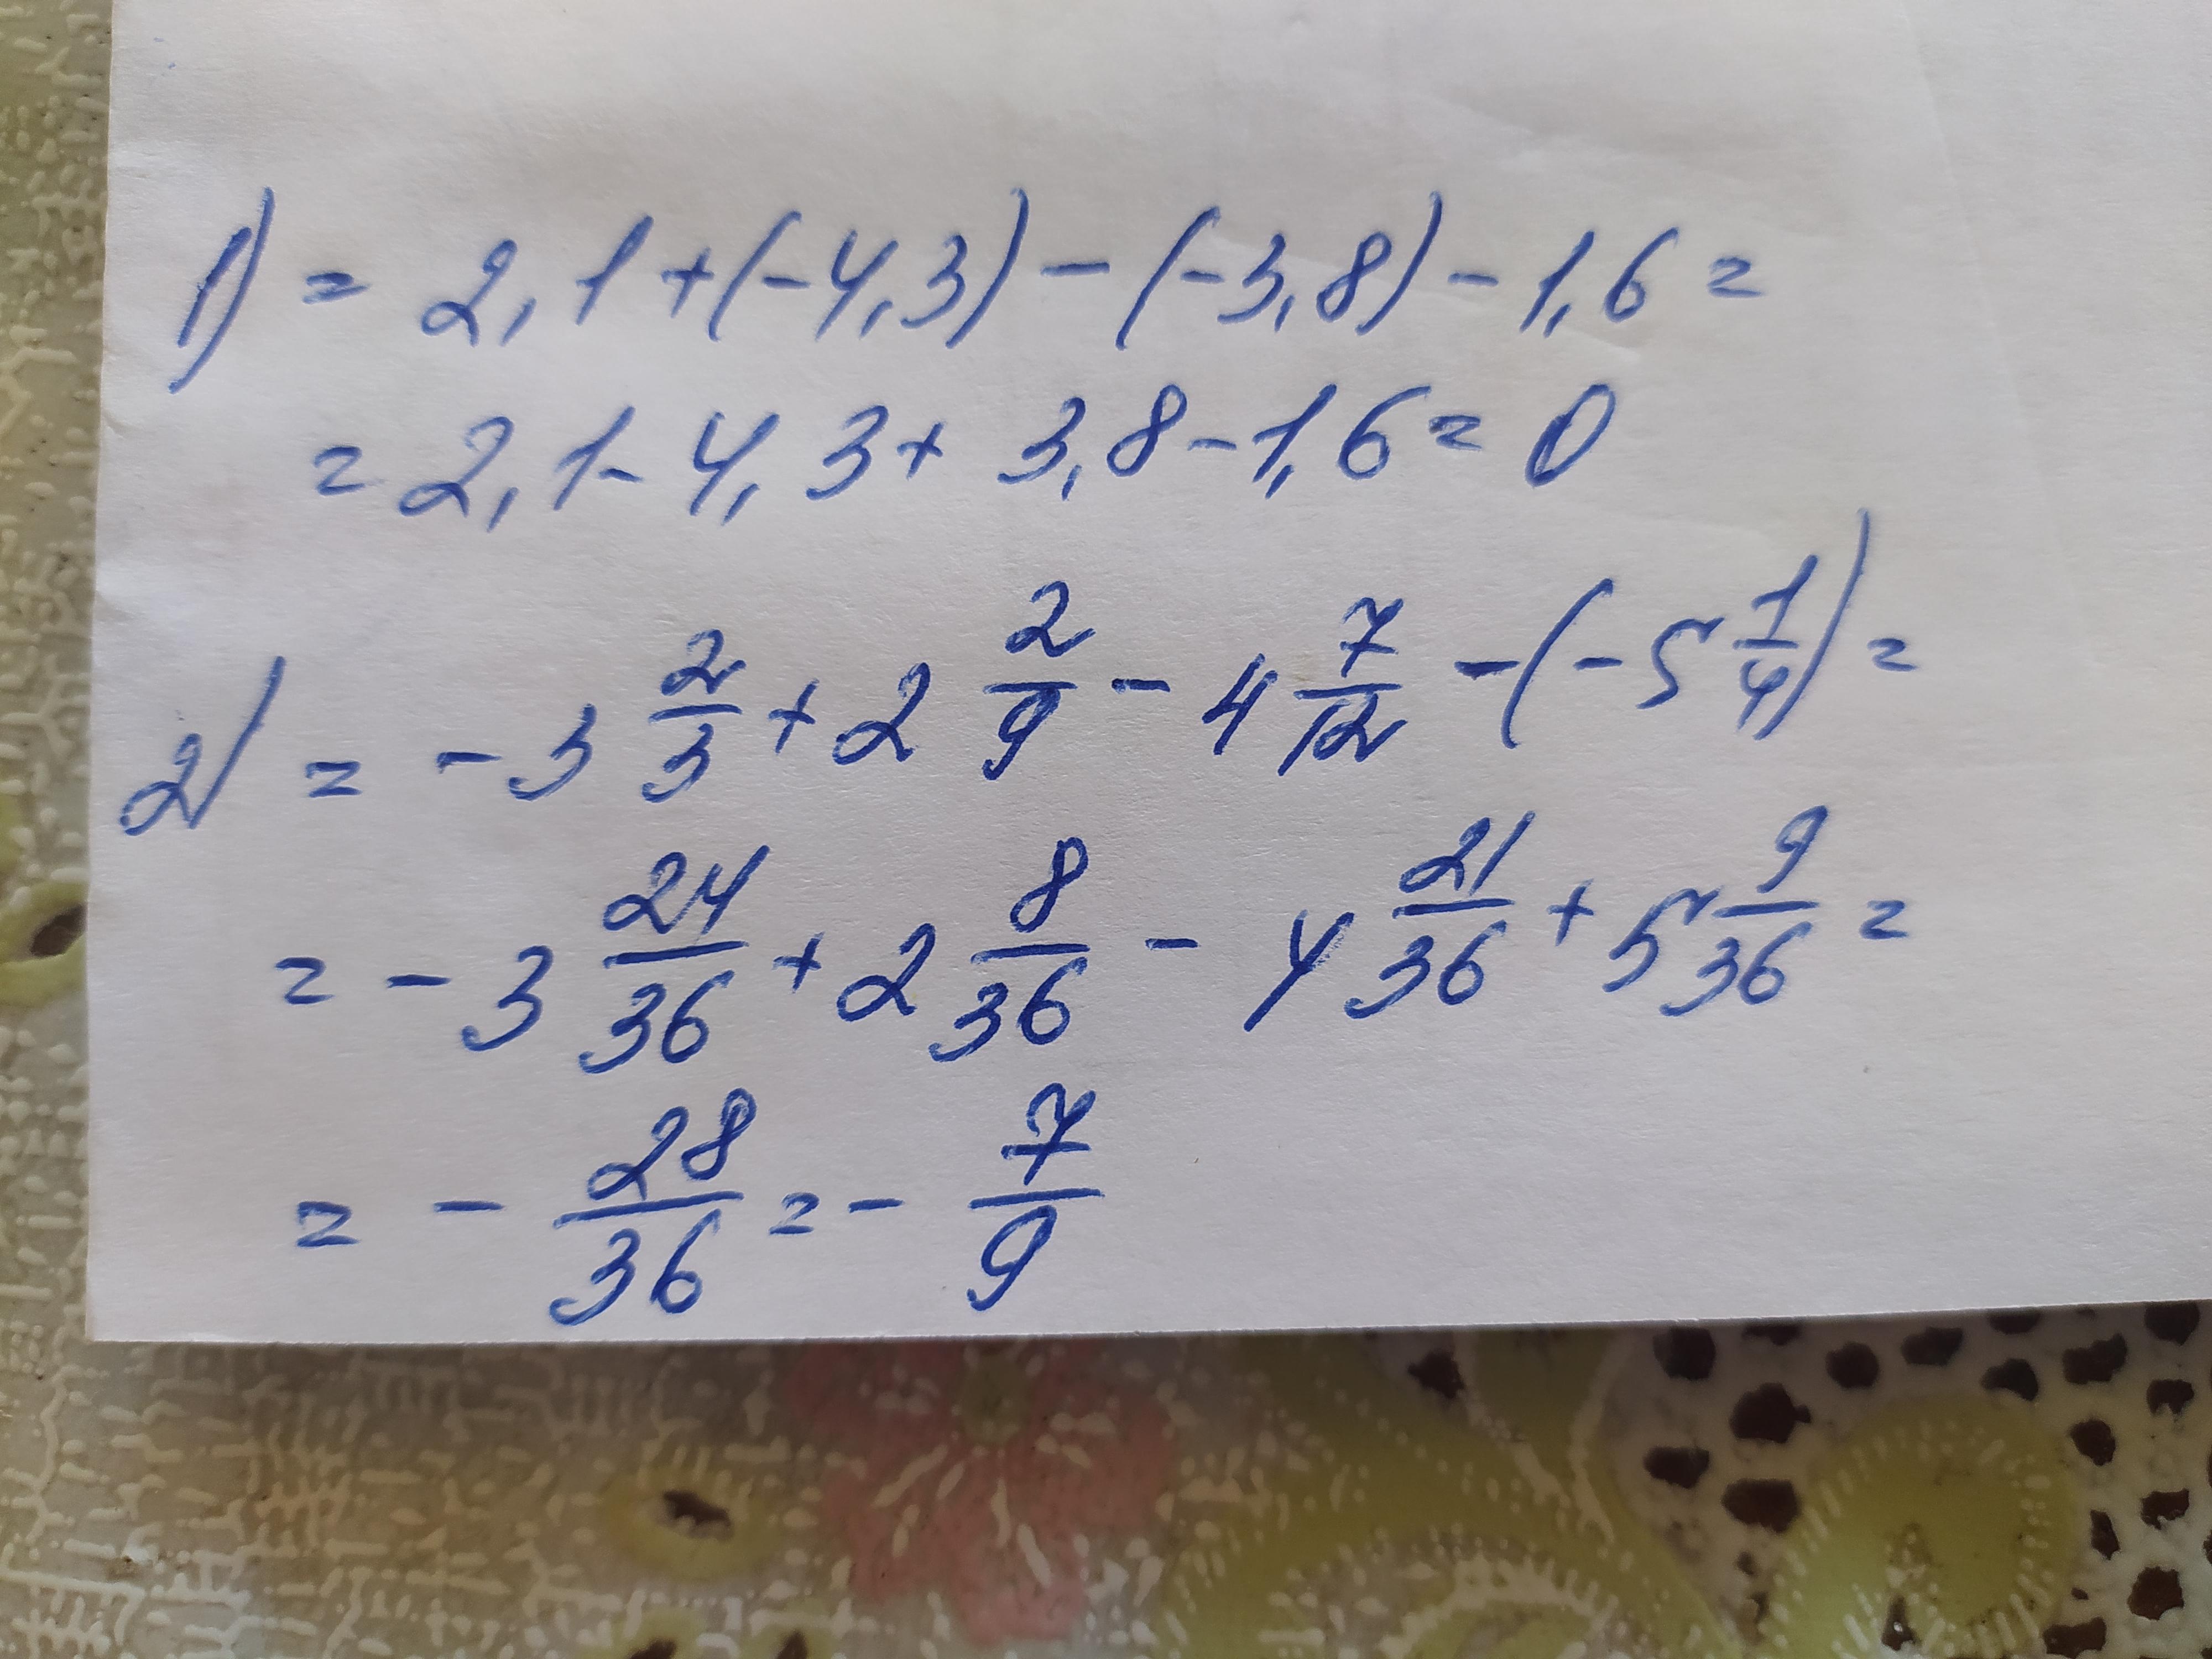 1) = 2,1 + (-4,3) - (-3,8) - 1,6 =
= 2,1 - 4,3 + 3,8 - 1,6 = 0
2) = - 3 2/3 + 2 2/9 - 4 7/12 - (- 5 1/4) =
= - 3 24/36 + 2 8/36 - 4 21/36 + 5 9/36 =
= - 28/36 = - 7/9